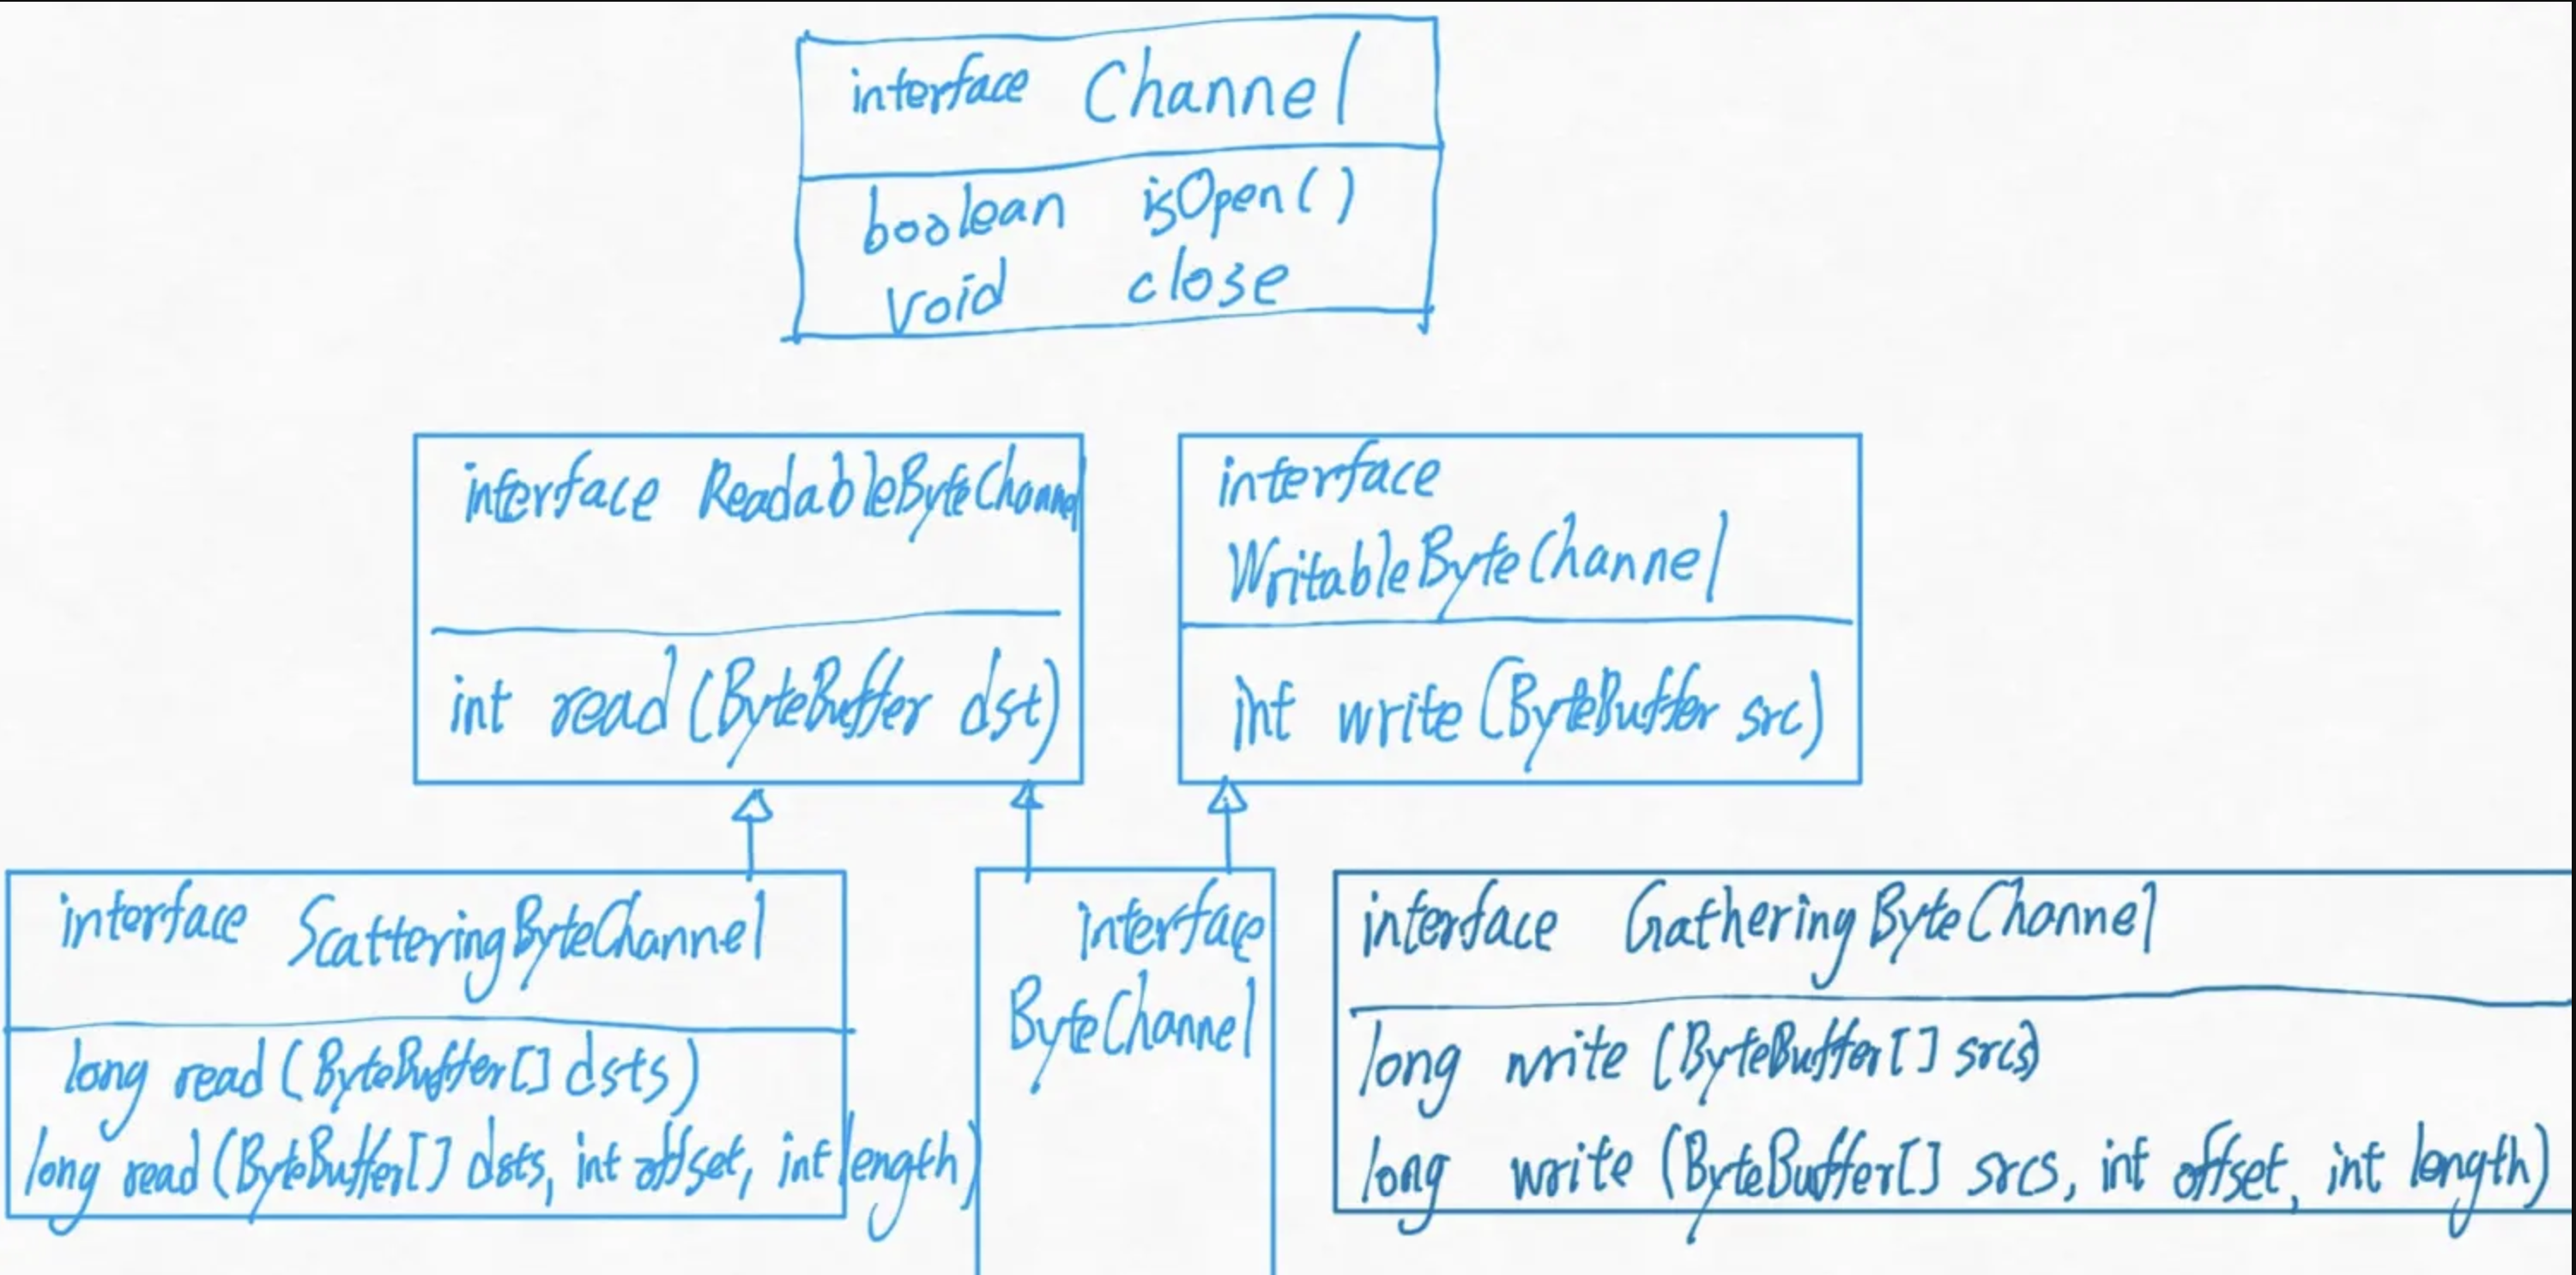 interface Channel
boolean isOpen()
void close
interface ReadableByteChannel
int read (ByteBuffer dst)
interface
WritableByteChannel
int write (ByteBuffer src)
interface ScatteringByteChannel
long read (ByteBuffer[] dsts)
long read (ByteBuffer[] dsts, int offset, int length)
interface
ByteChannel
interface GatheringByteChannel
long write (ByteBuffer[] srcs)
long write (ByteBuffer[] srcs, int offset, int length)